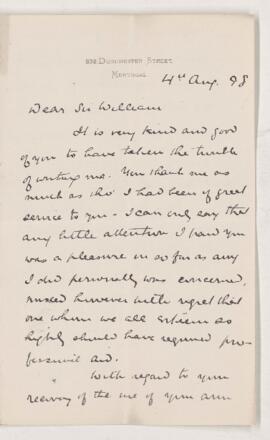 Dorchester Street
Montreal
4th Aug. 98
Dear Sir William
It is very kind and good
of you to have taken the trouble
of writing me. You thank me as
much as tho' I had been of great
service to you - I can only say that
any little attention I paid you
was a pleasure in so far as any
I did personally was concerned,
mixed however with regret that
one whom we all esteem as
highly should have required pro-
fessional aid.
With regard to your
recovery of the use of your arm